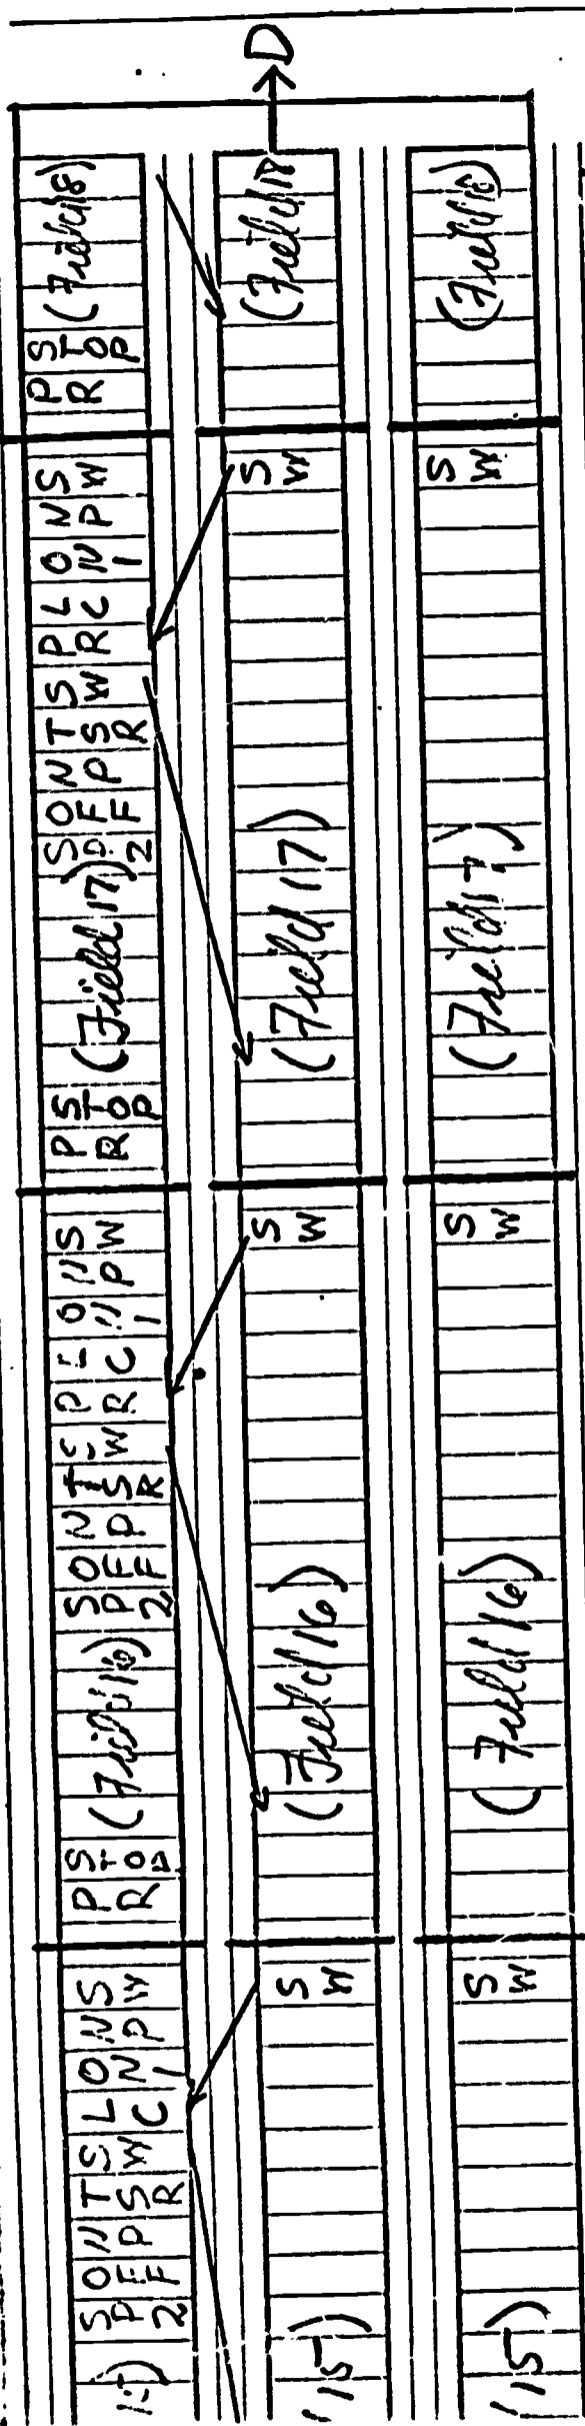 15) SP2 OFF NP TSR SW LC ON1 NP SW PR STOP (Field 16) SP2 OFF NP TSR SW PR LC ON1 NP SW PR STOP (Field 17) SP2 OFF NP TSR SW PR LC ON1 NP SW PR STOP (Field 18)
15) SW (Field 16) SW (Field 17) SW (Field 18) D
15) SW (Field 16) SW (Field 17) SW (Field 18)